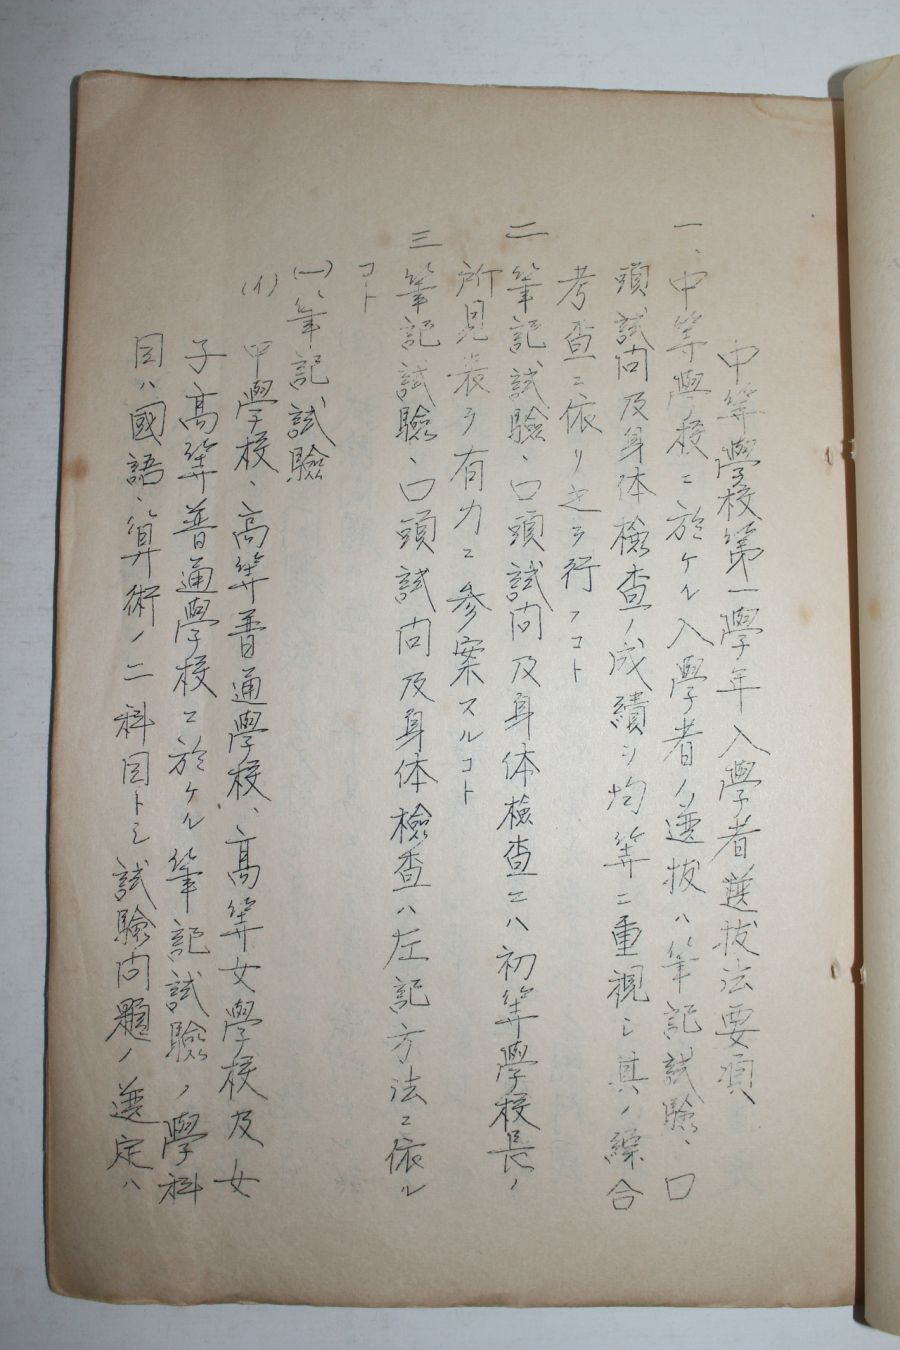 中等學校第一學年入學者選拔法要項
一、中等學校ニ於ケル入學者ノ選拔ハ筆記試驗、口
頭試問及身体檢査ノ成績ヲ均等ニ重視シ其ノ綜合
考査ニ依リ之ヲ行フコト
二 筆記試驗、口頭試問及身体檢査ニハ初等學校長ノ
所見表ヲ有力ニ参案スルコト
三 筆記試驗、口頭試問及身体檢査ハ左記方法ニ依ル
コト
(一) 筆記試驗
(イ) 中學校、高等普通學校、高等女學校及女
子高等普通學校ニ於ケル筆記試驗ノ學科
目ハ國語、算術ノ二科目トシ試驗問題ノ選定ハ